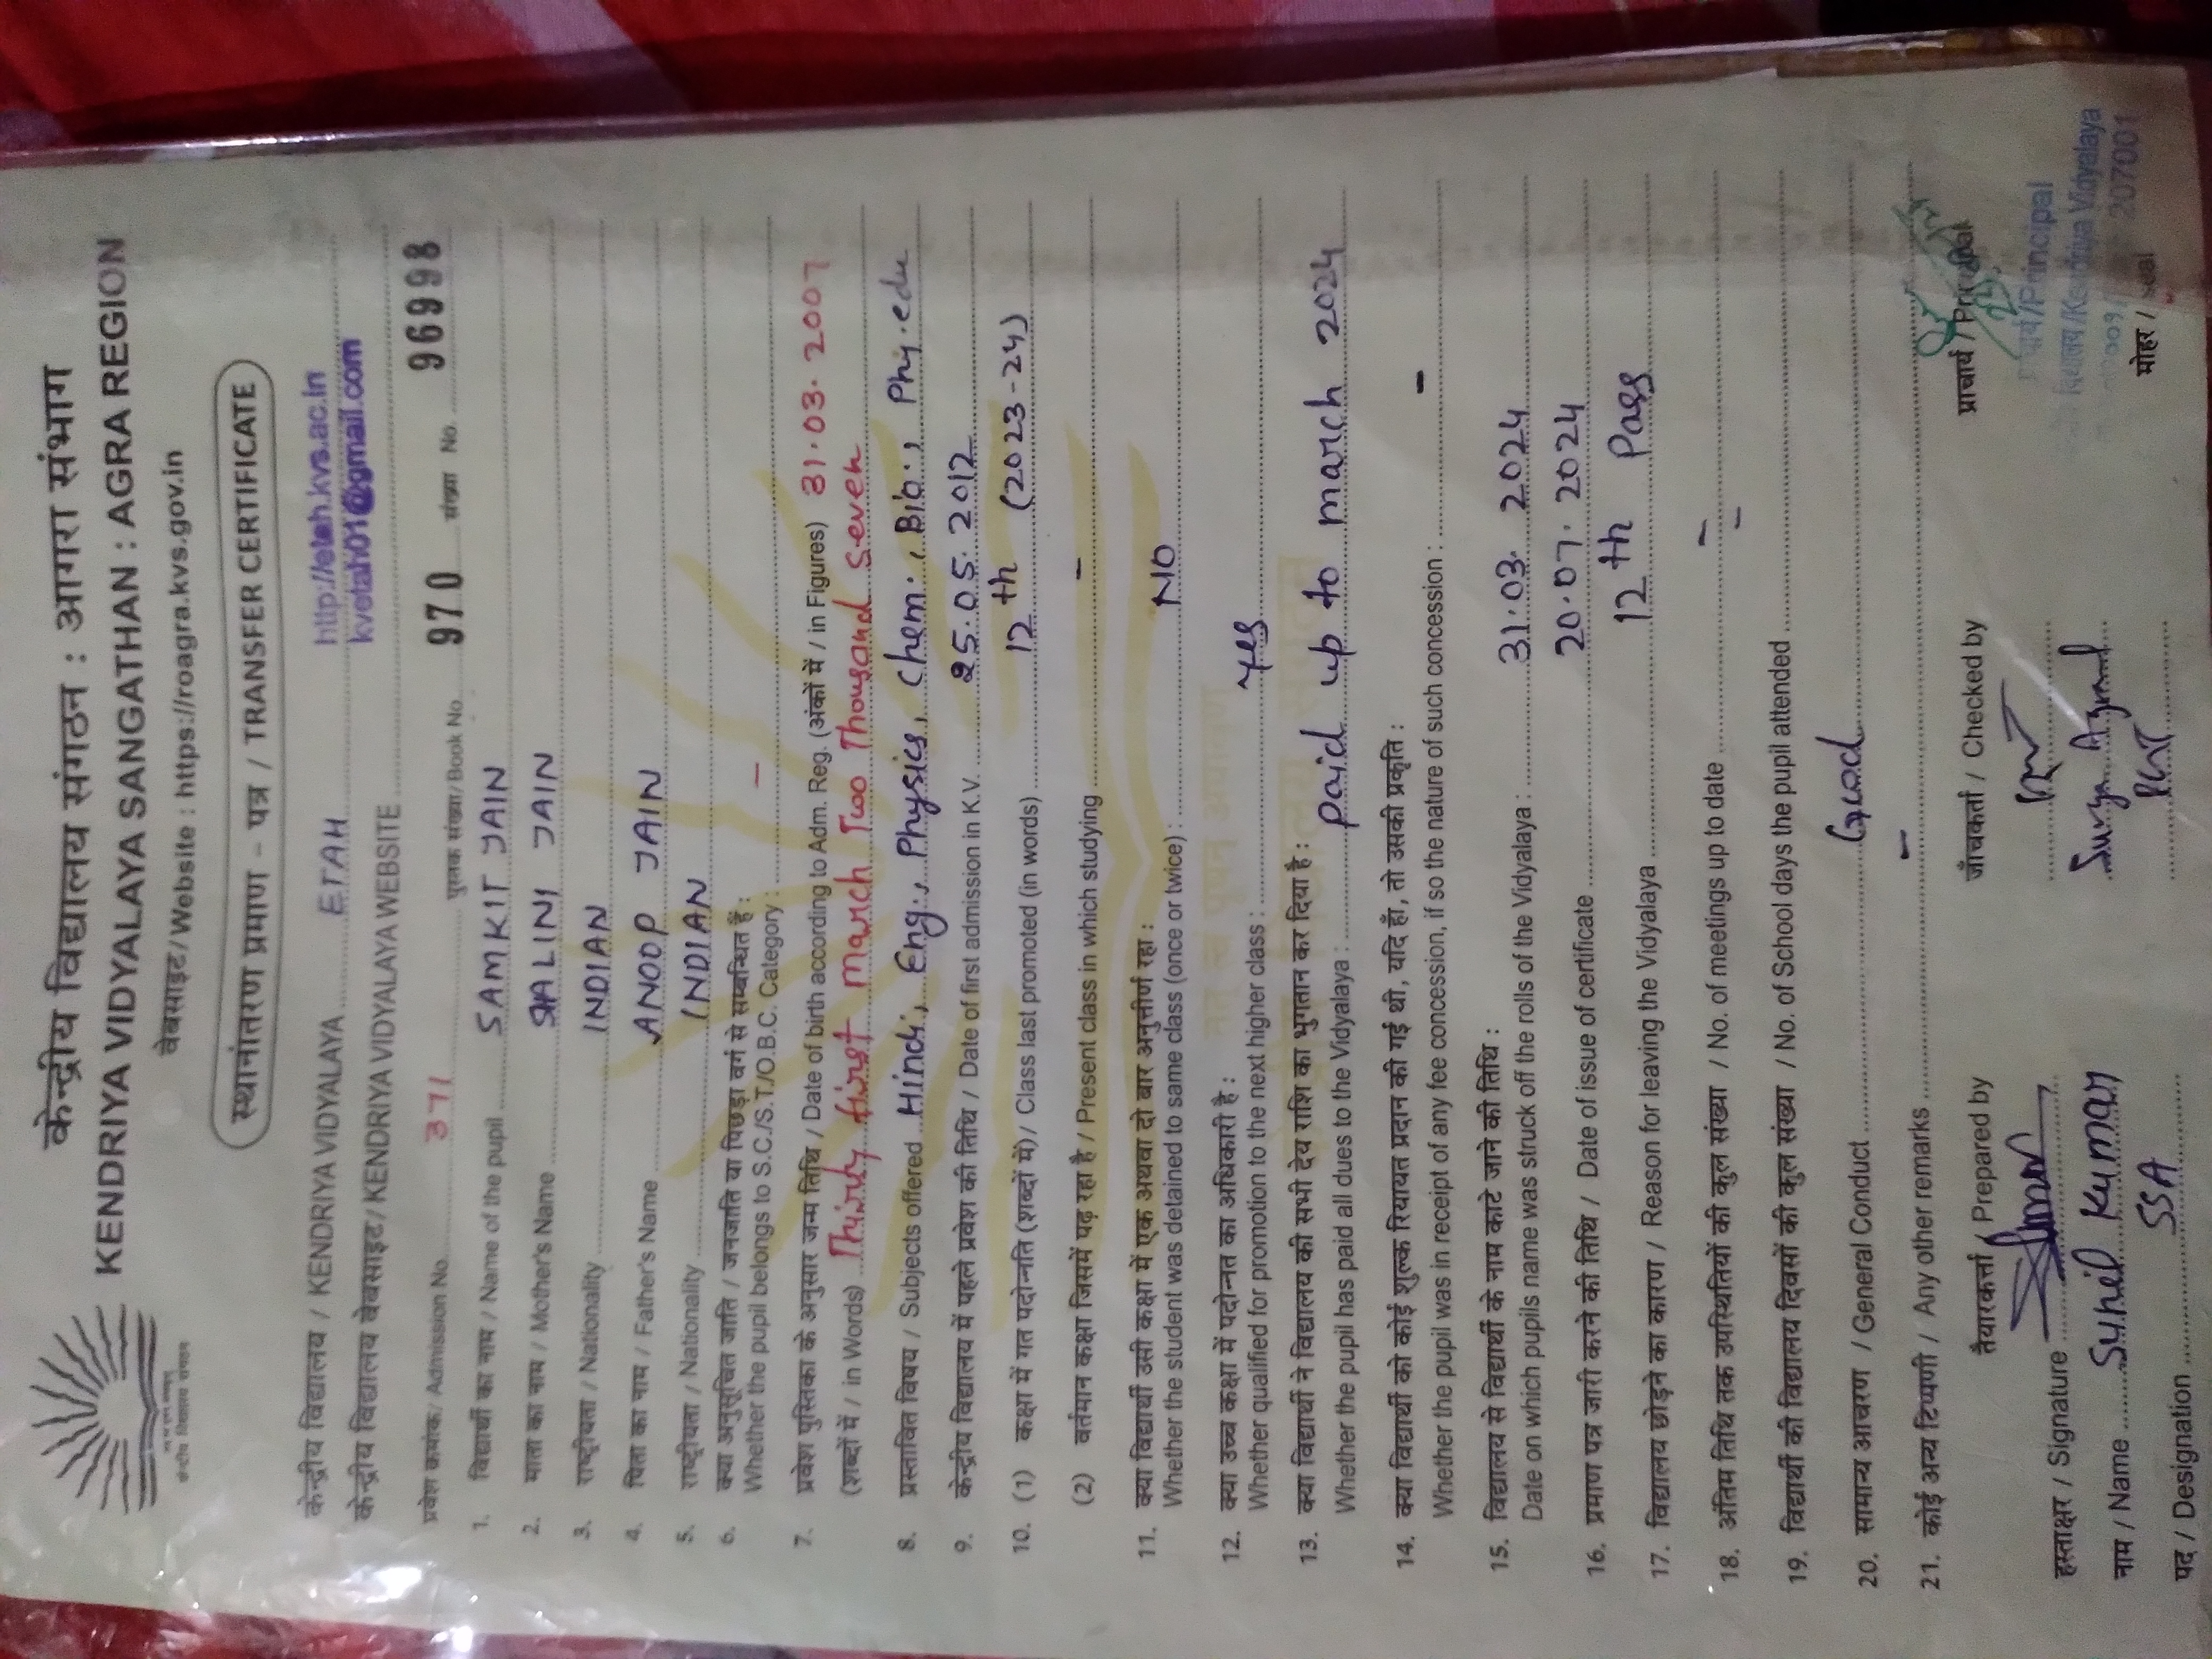 केन्द्रीय विद्यालय संगठन : आगरा संभाग
KENDRIYA VIDYALAYA SANGATHAN : AGRA REGION
वेबसाइट/Website : https://roagra.kvs.gov.in
केन्द्रीय विद्यालय संगठन
स्थानांतरण प्रमाण - पत्र / TRANSFER CERTIFICATE
केन्द्रीय विद्यालय / KENDRIYA VIDYALAYA ETAH http://etah.kvs.ac.in
केन्द्रीय विद्यालय वेबसाइट/ KENDRIYA VIDYALAYA WEBSITE kvetah01@gmail.com
प्रवेश क्रमांक/ Admission No. 371 पुस्तक संख्या/ Book No. 970 संख्या No. 96998
1. विद्यार्थी का नाम / Name of the pupil SAMKIT JAIN
2. माता का नाम / Mother's Name SHALINI JAIN
3. राष्ट्रीयता / Nationality INDIAN
4. पिता का नाम / Father's Name ANOOP JAIN
5. राष्ट्रीयता / Nationality INDIAN
6. क्या अनुसूचित जाति / जनजाति या पिछड़ा वर्ग से सम्बन्धित है :
Whether the pupil belongs to S.C./S.T./O.B.C. Category : –
7. प्रवेश पुस्तिका के अनुसार जन्म तिथि / Date of birth according to Adm. Reg. (अंकों में / in Figures) 31.03.2007
(शब्दों में / in Words) Thirty first March Two Thousand Seven
8. प्रस्तावित विषय / Subjects offered Hindi, Eng., Physics, Chem., Bio., Phy.edu
9. केन्द्रीय विद्यालय में पहले प्रवेश की तिथि / Date of first admission in K.V. 25.05.2012
10. (1) कक्षा में गत पदोन्नति (शब्दों में) / Class last promoted (in words) 12th (2023-24)
(2) वर्तमान कक्षा जिसमें पढ़ रहा है / Present class in which studying –
11. क्या विद्यार्थी उसी कक्षा में एक अथवा दो बार अनुत्तीर्ण रहा :
Whether the student was detained to same class (once or twice) : NO
12. क्या उच्च कक्षा में पदोन्नत का अधिकारी है :
Whether qualified for promotion to the next higher class : Yes
13. क्या विद्यार्थी ने विद्यालय की सभी देय राशि का भुगतान कर दिया है :
Whether the pupil has paid all dues to the Vidyalaya : paid up to march 2024
14. क्या विद्यार्थी को कोई शुल्क रियायत प्रदान की गई थी, यदि हाँ, तो उसकी प्रकृति :
Whether the pupil was in receipt of any fee concession, if so the nature of such concession : –
15. विद्यालय से विद्यार्थी के नाम काटे जाने की तिथि :
Date on which pupils name was struck off the rolls of the Vidyalaya : 31.03.2024
16. प्रमाण पत्र जारी करने की तिथि / Date of issue of certificate 20.07.2024
17. विद्यालय छोड़ने का कारण / Reason for leaving the Vidyalaya 12th Pass
18. अंतिम तिथि तक उपस्थितियों की कुल संख्या / No. of meetings up to date –
19. विद्यार्थी की विद्यालय दिवसों की कुल संख्या / No. of School days the pupil attended –
20. सामान्य आचरण / General Conduct Good
21. कोई अन्य टिप्पणी / Any other remarks –
तैयारकर्त्ता / Prepared by जाँचकर्ता / Checked by प्राचार्य / Principal
हस्ताक्षर / Signature
नाम / Name Sunil Kumar
पद / Designation SSA
PRT
/Principal
/Kendriya Vidyalaya
207001
मोहर / Seal